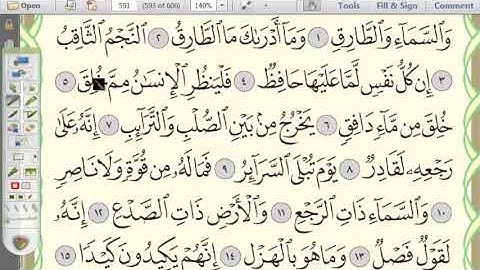 Open
591
(593 of 606)
140%
Tools
Fill & Sign
Comment
وَٱلسَّمَآءِ وَٱلطَّارِقِ ١ وَمَآ أَدْرَىٰكَ مَا ٱلطَّارِقُ ٢ ٱلنَّجْمُ ٱلثَّاقِبُ
٣ إِن كُلُّ نَفْسٍ لَّمَّا عَلَيْهَا حَافِظٌ ٤ فَلْيَنظُرِ ٱلْإِنسَـٰنُ مِمَّ خُلِقَ ٥
خُلِقَ مِن مَّآءٍ دَافِقٍ ٦ يَخْرُجُ مِنۢ بَيْنِ ٱلصُّلْبِ وَٱلتَّرَآئِبِ ٧ إِنَّهُۥ عَلَىٰ
رَجْعِهِۦ لَقَادِرٌ ٨ يَوْمَ تُبْلَى ٱلسَّرَآئِرُ ٩ فَمَا لَهُۥ مِن قُوَّةٍ وَلَا نَاصِرٍ
١٠ وَٱلسَّمَآءِ ذَاتِ ٱلرَّجْعِ ١١ وَٱلْأَرْضِ ذَاتِ ٱلصَّدْعِ ١٢ إِنَّهُۥ
لَقَوْلٌ فَصْلٌ ١٣ وَمَا هُوَ بِٱلْهَزْلِ ١٤ إِنَّهُمْ يَكِيدُونَ كَيْدًا ١٥